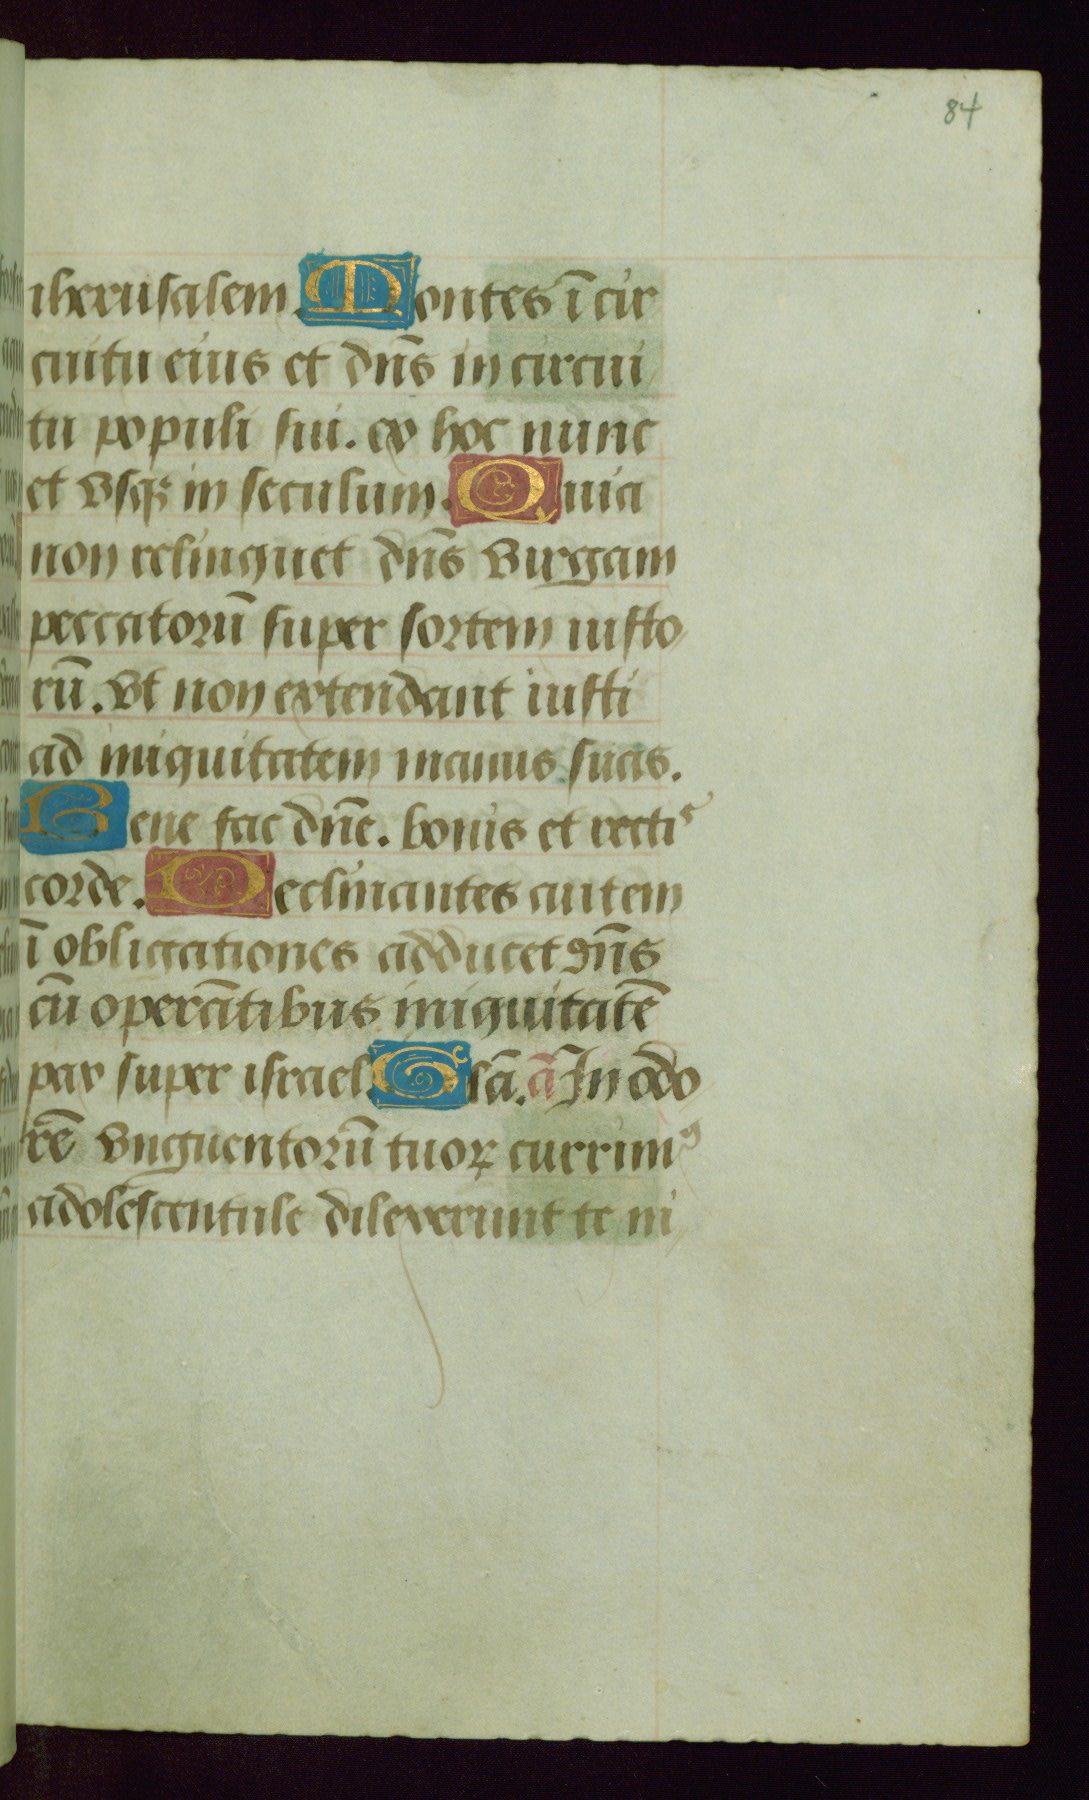 84
iherusalem. Montes ī cir
cuitu eius et dn̄s in circui
tu populi sui. ex hoc nunc
et vsqꝫ in seculum. Quia
non relinquet dn̄s virgam
peccatorū super sortem iusto
rū. Vt non extendant iusti
ad iniquitatem manus suas.
Bene fac dn̄e. bonis et rectis
corde. Declinantes autem
ī obligationes adducet dn̄s
cū operātibus iniquitatē
pax super israel. Glā. ā In odo
rē vnguentorū tuoꝝ currimꝰ
adolescentule dilexerunt te ni